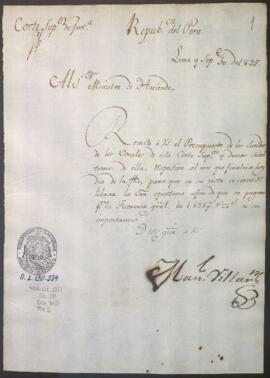 Corte Sup.r de Just.a
Repub.ca del Peru
1
Lima y Sep.e 30 de 1825.
Al S.or Ministro de Hacienda.
Remito á VS. el Presupuesto de los Sueldos
de los Vocales de esta Corte Sup.or y demas
de ella, respectivo al mes que finaliza hoy
dia de la fha, para que en su vista se sirva VS.
librar la orn. oportuna afin de que se paguen
p.r la Tesoreria gral. los
importancia
Dios gue. á VS.
Man.l Villar
O.L. 130-334